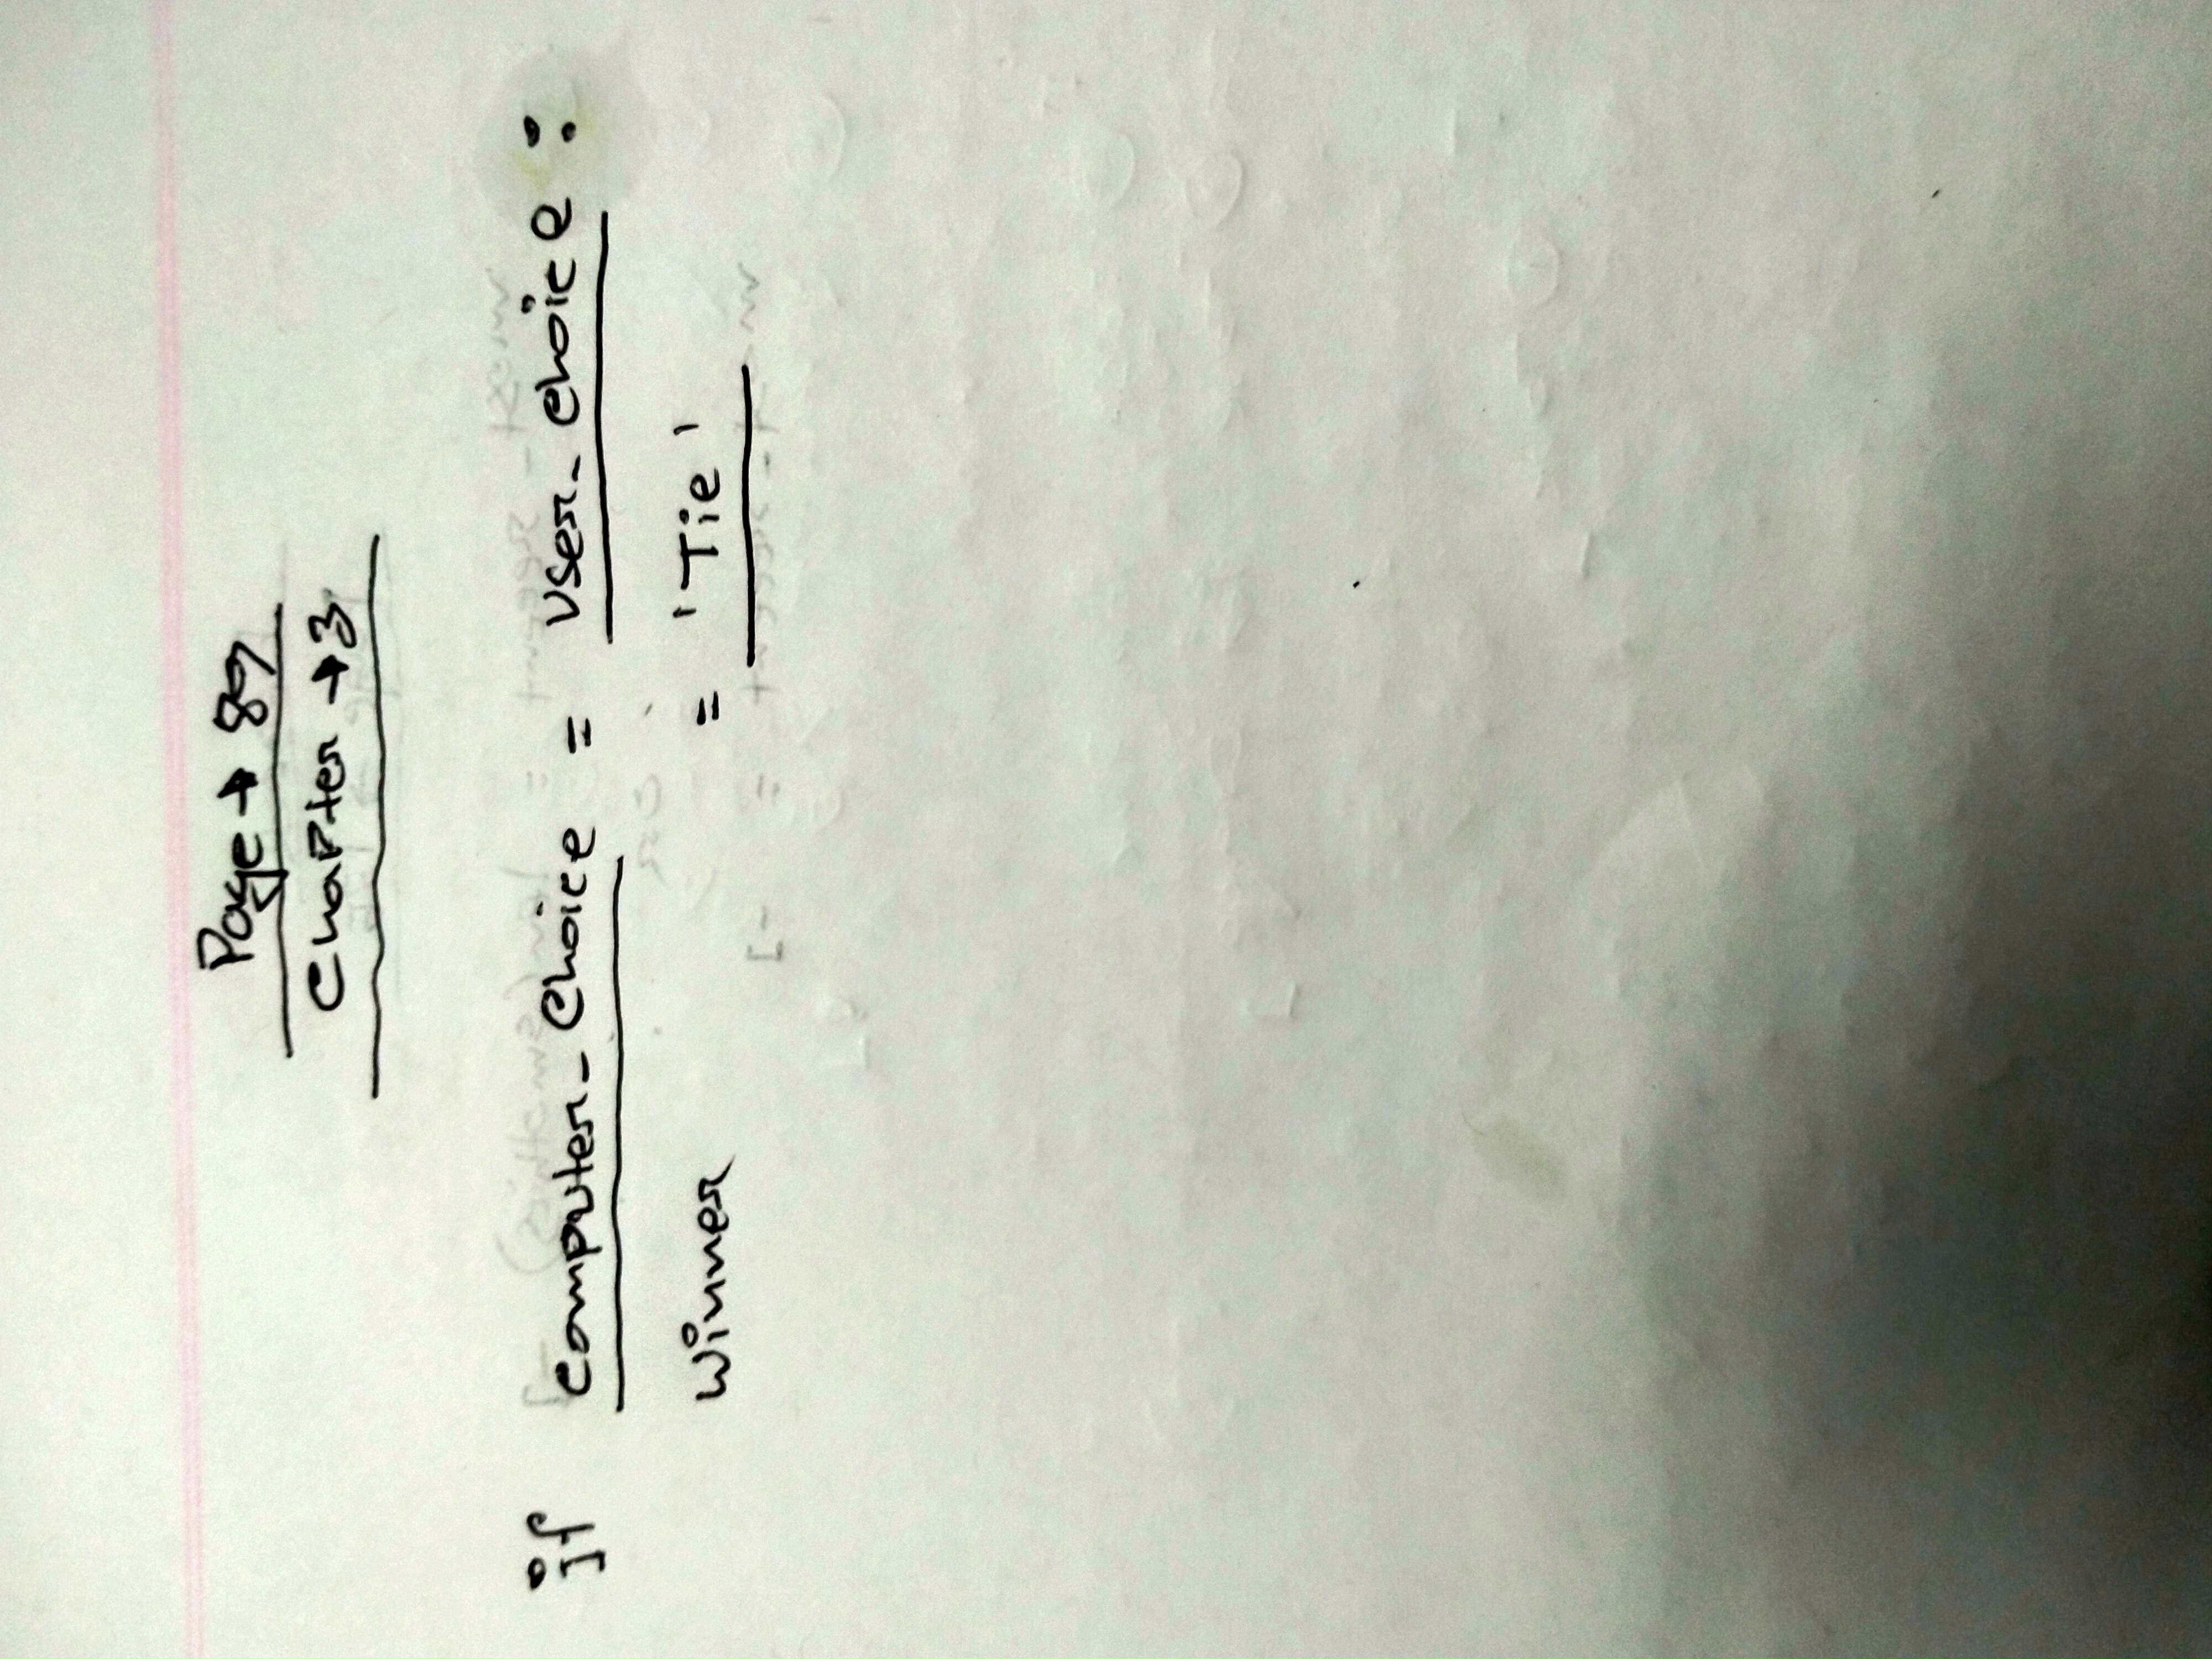 Page → 89
Chapter → 3
if computer_choice = user_choice :
winner = 'Tie'